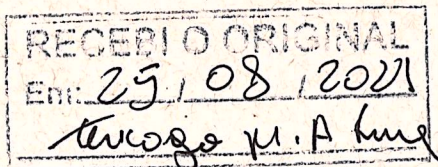 RECEBI O ORIGINAL
Em: 25 / 08 / 2021
M. A